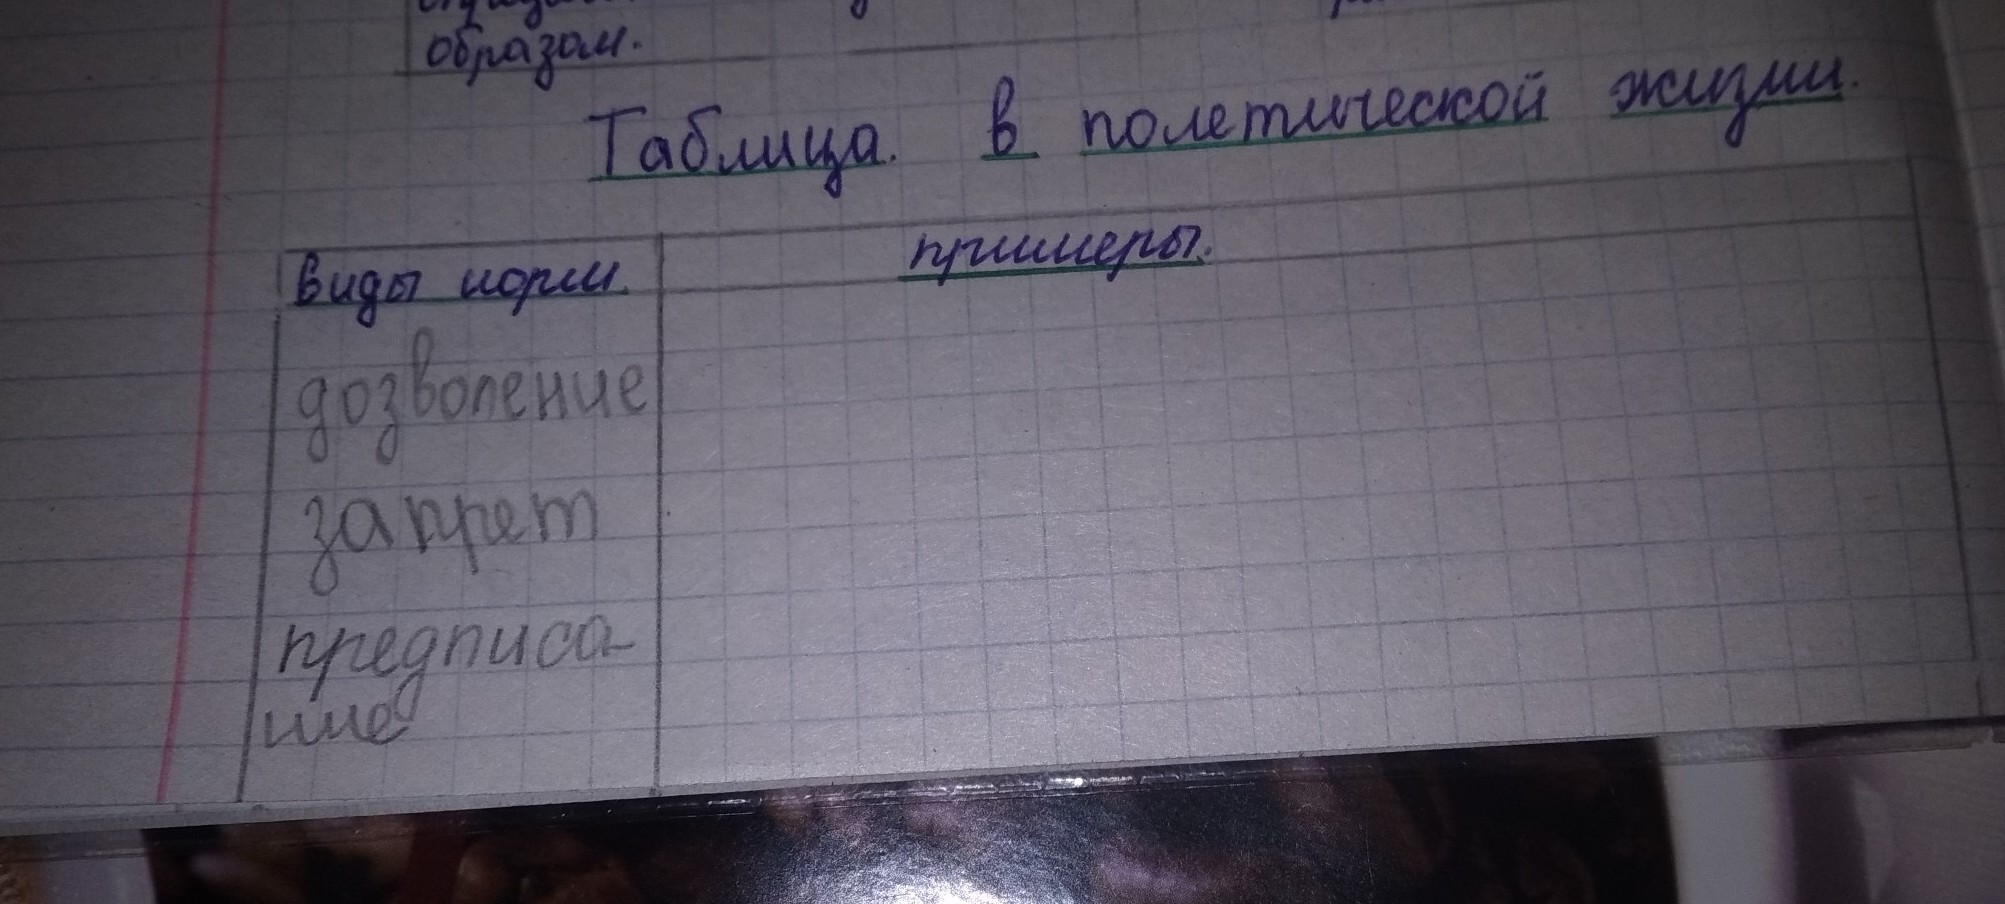 образом.
Таблица. в полетической жизни.
виды норм. примеры.
дозволение
запрет
предписа-
ние